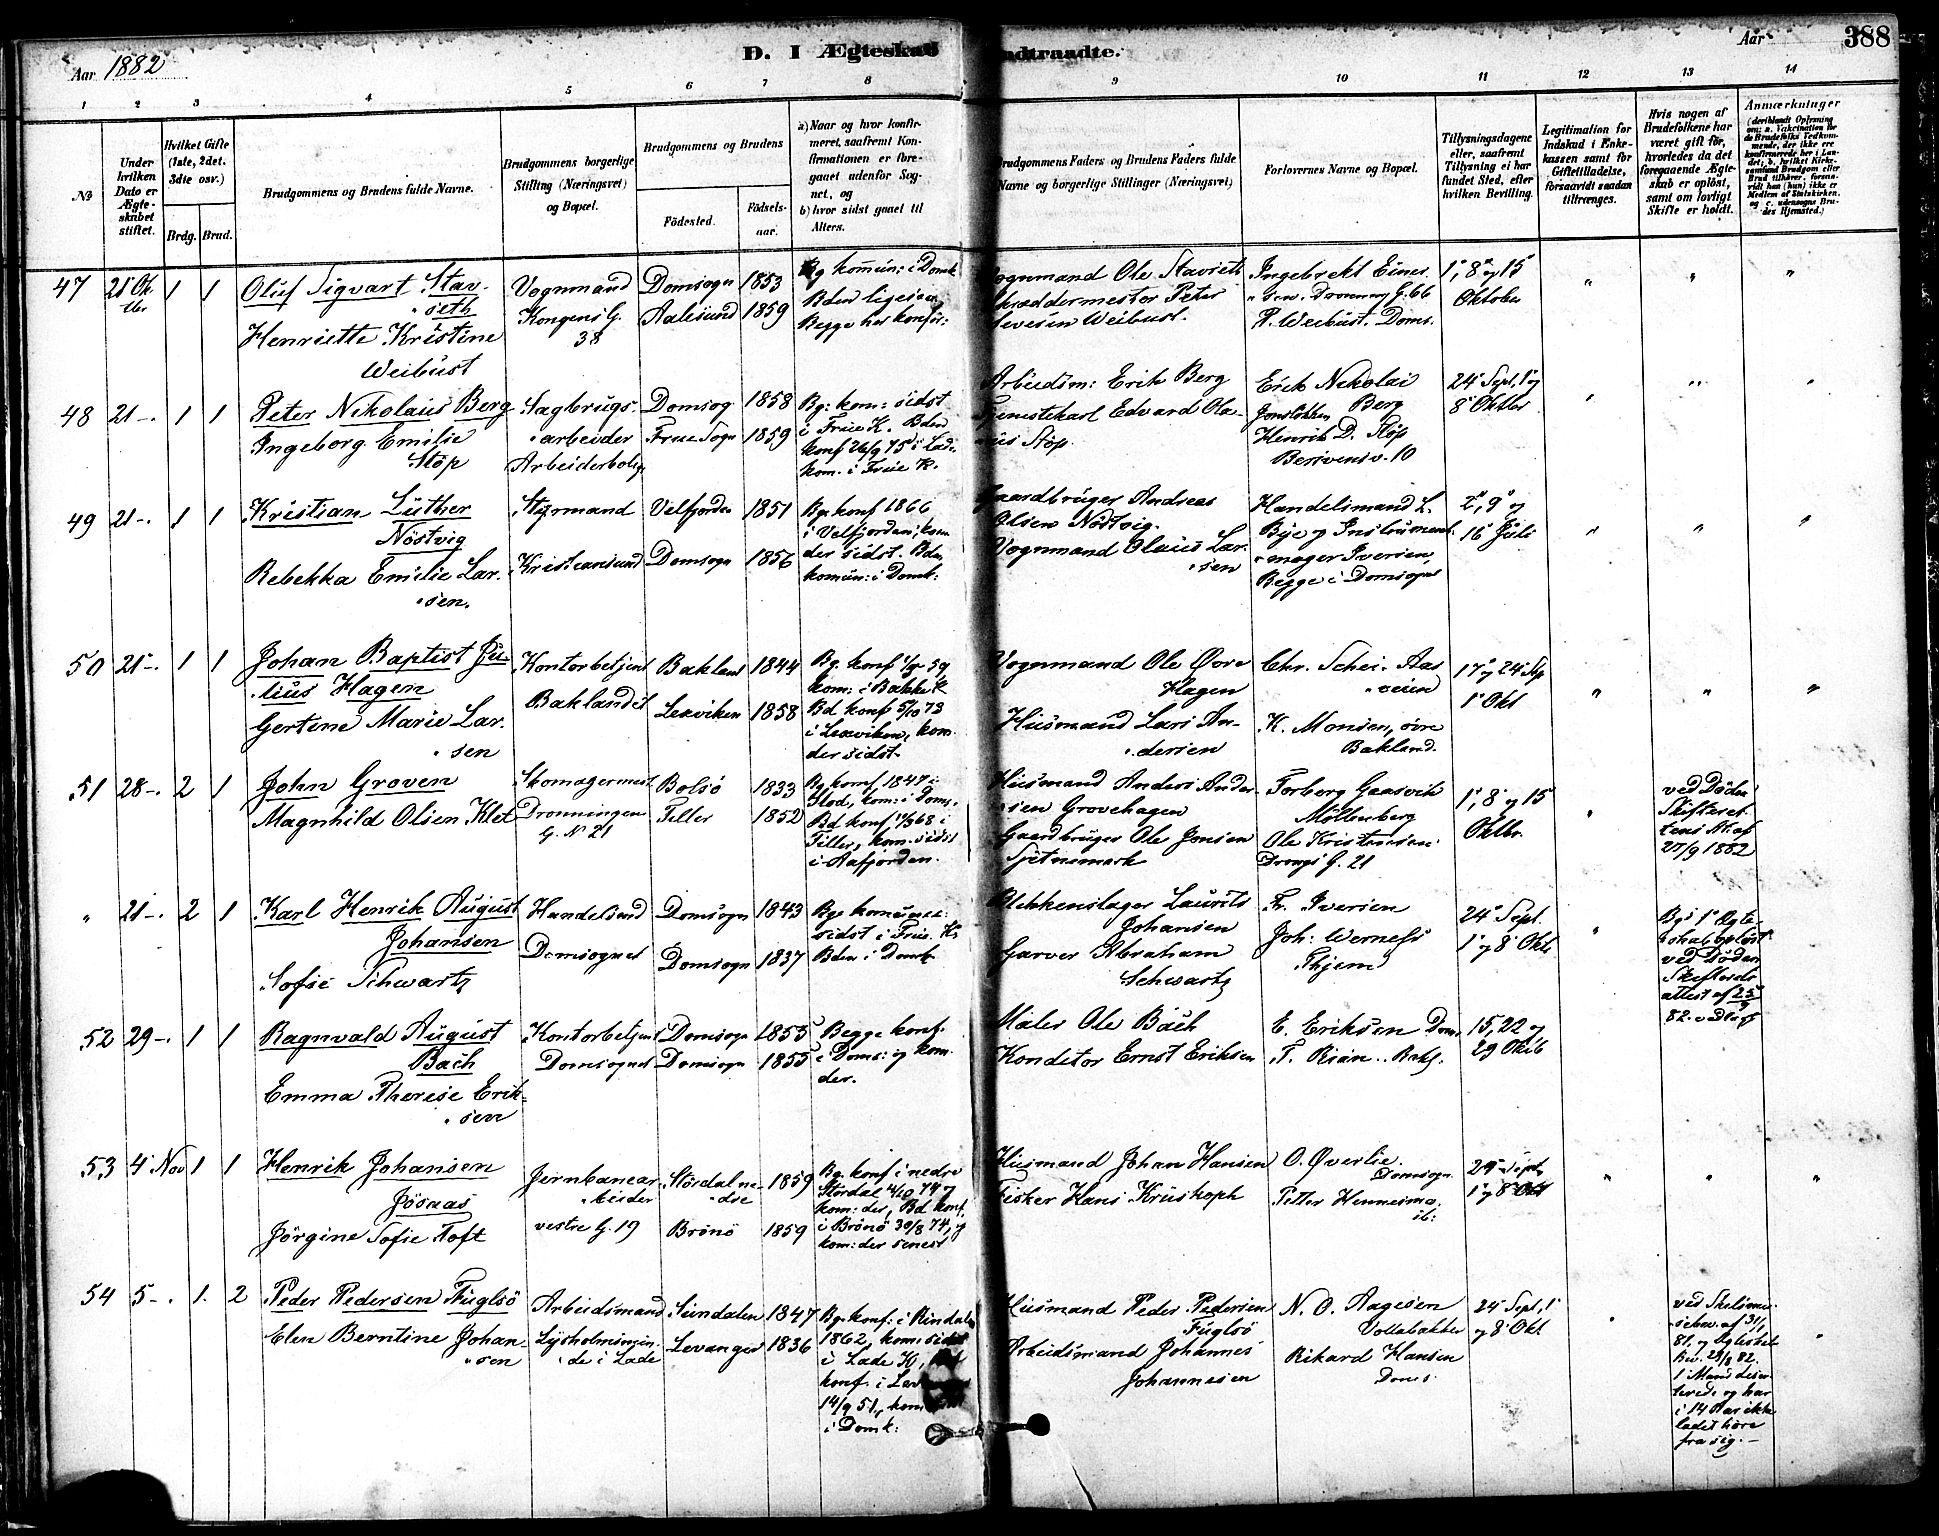 Aar 1882
D. I Ægteskab indtraadte.
Aar
388
1 2 3 4 5 6 7 8 9 10 11 12 13 14
No
Under hvilken Dato er Ægteskabet stiftet.
Hvilket Gifte (1ste, 2det. 3die osv.)
Brdg. Brud.
Brudgommens og Brudens fulde Navne.
Brudgommens borgerlige Stilling (Næringsvei) og Bopæl.
Brudgommens og Brudens
Födested.
Födselsaar.
a) Naar og hvor konfirmeret, saafremt Konfirmationen er foregaaet udenfor Sognet, og
b) hvor sidst gaaet til Alters.
Brudgommens Faders og Brudens Faders fulde Navne og borgerlige Stillinger (Næringsvei)
Forlovernes Navne og Bopæl.
Tillysningsdagene eller, saafremt Tillysning ei har fundet Sted, efter hvilken Bevilling.
Legitimation for Indskud i Enkekassen samt for Giftetilladelse, forsaavidt saadan tiltrænges.
Hvis nogen af Brudefolkene har været gift för, hvorledes da det foregaaende Ægteskab er oplöst, samt om lovligt Skifte er holdt.
Anmærkninger
47 21 Oktbr 1 1
Oluf Sigvart Stavseth
Henriette Kristine Weibust
Vognmand
Kongens G. 38
Domsogn 1853
Aalesund 1859
Bg kommun: i Domk
Bden ligesaa
Begge her konfir:
Vognmand Ole Stavseth
Skræddermester Peter
Weibust.
Ingebrekt Eines
Dronning G. 66
P. Weibust. Doms.
1, 8 og 15 Oktober
" " "
48 21 -. 1 1
Peter Nikolaus Berg
Ingeborg Emilie Stöp
Sagbrugsarbeider
Arbeiderbolig
Domsog 1858
Frue Sogn 1859
Bg: kom: sidst
i Frue K. Bden
konf 26/9 75 i Lade
kom. i Frue K.
Arbeidsm: Erik Berg
Tjenestekarl Edvard Olaus Stöp.
Erik Nikolai Berg
Henrik D. Stöp
10
24 Sept, 1 og 8 Oktbr
" " "
49 21 -. 1 1
Kristian Luther Nöstvig
Rebekka Emilie Larsen.
Styrmand
Kristiansund
Velfjorden 1851
Domsogn 1856
Bg. konf 1866
i Velfjorden, kom
der sidst. Bden
kommun: i Domk:
Gaardbruger Andreas
Olsen Nöstvig.
Vognmand Olaus Larsen
Handelsmand L.
Bye og Instrumentmager Iversen,
Begge i Domsognet
2, 9 og 16 Juli
" " "
50 21 -. 1 1
Johan Baptist Julius Hagen
Gertine Marie Larsen
Kontorbetjent
Baklandet
Bakland 1844
Lexviken 1858
Bg. konf 59
kom: i Bakke K
Bd konf 5/10 73
i Lexviken, kom
der sidst.
Vognmand Ole Övre Hagen
Husmand Lars Andersen
Chr. Schei. Aasveien
K. Monsen, övre Bakland.
17 og 24 Sep
1 Okt
" " "
51 28 -. 2 1
John Groven
Magnhild Olsen Klet
Skomagermest
Dronningen G. N 21
Bolsö 1833
Tiller 1852
Bg konf 1847 i
kom: i Doms.
Bd konf 68 i
Tiller, kom. sidst
i Aafjorden.
Husmand Anders Andersen Grovehagen
Gaardbruger Ole Jonsen
Sjetnemark
Torberg Gaasvik
Möllenberg
Ole Kristensen
Drongs G. 21
1, 8 og 15 Oktbr.
"
ved Döden
Skifteret
tens At. af
27/9 1882
" 21 -. 2 1
Karl Henrik August Johansen
Sofie Schwartz
Handelsmd
Domsognet
Domsogn 1843
Domsogn 1837
Bg. kommunic:
sidst i Frue. K.
Bden i Domk.
Blikkenslager Laurits Johansen
Garver Abraham Schwartz
Fr. Iversen
Joh: Werness
24 Sept.
1 og 8 Okt
"
Bgs 1 Ægteskab oplöst
ved Döden
Skifterets
attest af 25/9
82. vedlagt
52 29 -. 1 1
Ragnvald August Bach
Emma Therese Eriksen
Kontorbetjent
Domsognet
Domsogn 1855
Domsogn 1855
Begge konf.
i Doms: og kom.
der.
Maler Ole Bach
Konditor Ernst Eriksen
E. Eriksen Doms
T. Rian. Bakl.
15, 22 og 29 Oktb
53 4 Nov 1 1
Henrik Johansen Jösnas
Jörgine Sofie Toft
Jernbanearbeider
vestre G. 19
Stördal nedre 1859
Brönö 1859
Bg. konf i nedre
Stördal 4/10 74 og
kom: der, Bd konf.
i Brönö 30/8 74, og
kom: der senest
Husmand Johan Hansen
Fisker Hans Kristoph
O. Överlie. Domsogn
Petter Hennesma
24 Sept,
1 og 8 Okt
" " "
54 5 -. 1. 2
Peder Pedersen Fuglsö
Elen Berntine Johansen
Arbeidsmand
Lysholminjende i Lade
Surndalen 1847
Levanger 1836
Bg. konf: i Rindalen
1862, kom: sidst
i Lade K,
konf. i Lev
14/9 51, kom
i Domk:
Husmand Peder Pedersen Fuglsö
Arbeidsmand Johannes Johannesen
N. O. Aagesen
Vollabakken
Rikard Hansen
Doms.
24 Sept, 1 og 8 Okt
"
ved
af 31/
81, og
Bev. 29/8 82.
1 Mand deser
terede og har
i 14 Aar ikke
ladet höre
fra sig. -
"